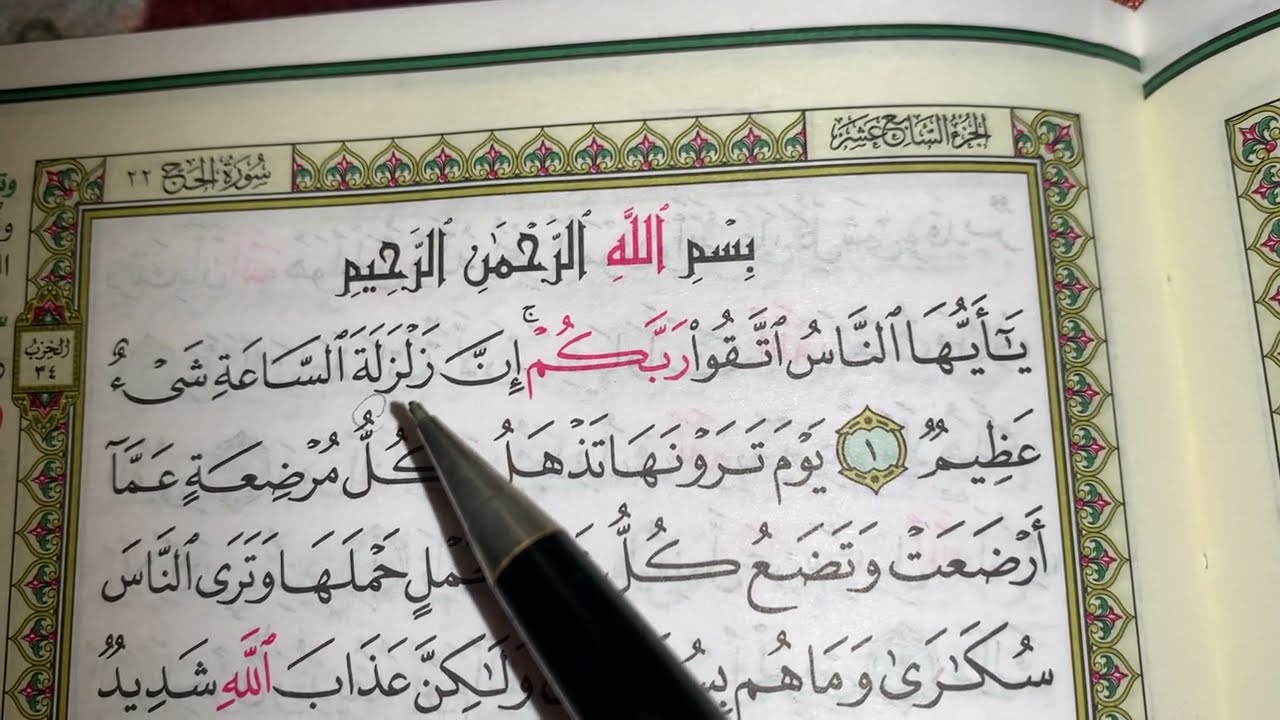 الجزء السابع عشر
سورة الحج ٢٢
بِسْمِ ٱللَّهِ ٱلرَّحْمَٰنِ ٱلرَّحِيمِ
يَٰٓأَيُّهَا ٱلنَّاسُ ٱتَّقُوا۟ رَبَّكُمْ ۚ إِنَّ زَلْزَلَةَ ٱلسَّاعَةِ شَىْءٌ
عَظِيمٌ ١ يَوْمَ تَرَوْنَهَا تَذْهَلُ كُلُّ مُرْضِعَةٍ عَمَّآ
أَرْضَعَتْ وَتَضَعُ كُلُّ حَمْلٍ حَمْلَهَا وَتَرَى ٱلنَّاسَ
سُكَٰرَىٰ وَمَا هُم وَلَٰكِنَّ عَذَابَ ٱللَّهِ شَدِيدٌ
الحزب
٣٤